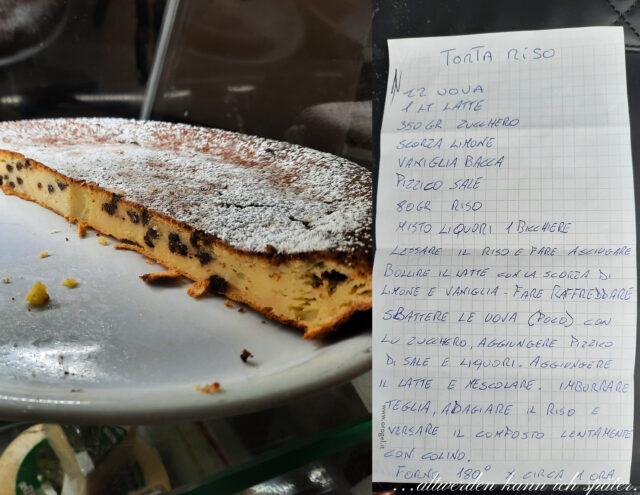 TORTA RISO
N 12 UOVA
1 LT LATTE
350GR ZUCCHERO
SCORZA LIMONE
VANIGLIA BACCA
PIZZICO SALE
80GR RISO
MISTO LIQUORI 1 BICCHIERE
LESSARE IL RISO E FARE ASCIUGARE
BOLLIRE IL LATTE CON LA SCORZA DI
LIMONE E VANIGLIA. FARE RAFFREDDARE
SBATTERE LE UOVA (POCO) CON
LO ZUCCHERO, AGGIUNGERE PIZZICO
DI SALE E LIQUORI. AGGIUNGERE
IL LATTE E MESCOLARE. IMBURRARE
TEGLIA, ADAGIARE IL RISO E
VERSARE IL COMPOSTO LENTAMENTE
CON COLINO.
FORNO 180° X CIRCA 1 ORA
...altwerden kann ich später.